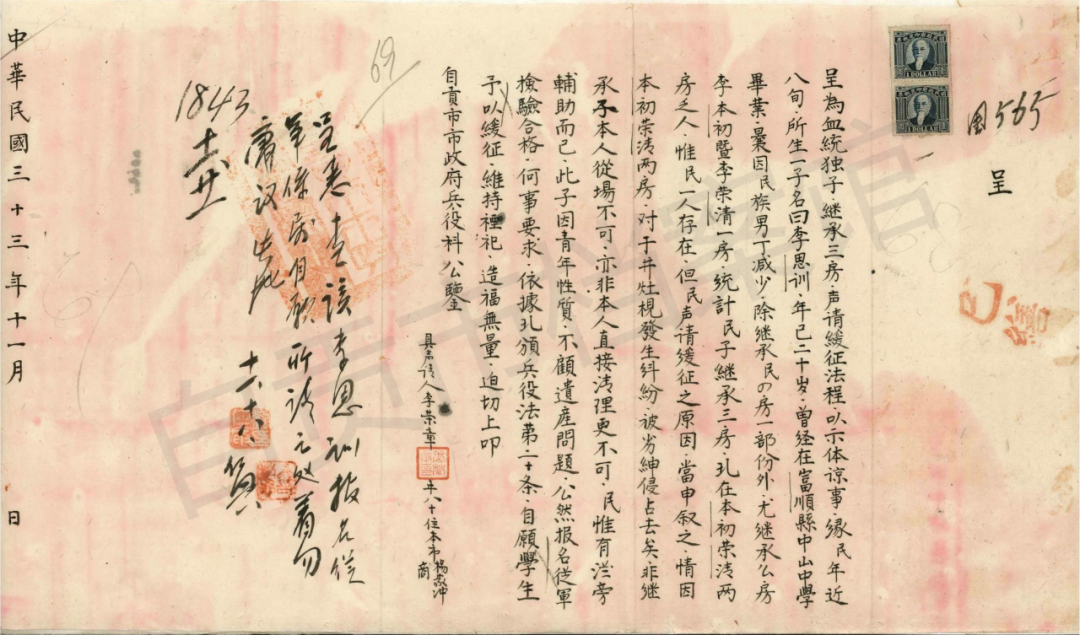 国565
呈
呈為血統独子·继承三房·声请缓征法程·以示体谅事·缘民年近
八旬·所生一子名曰李思训·年已二十岁·曾经在富順縣中山中學
畢業·曩因民族男丁减少·除继承民の房一部份外·尤继承么房
李本初暨李荣清一房·統計民子继承三房·玑在本初荣清两
房乏人·惟民一人存在·但民声请缓征之原因·當申叙之·情因
本初荣清两房·对于井灶枧發生纠纷·被劣紳侵占去矣·非继
承子本人從場不可·亦非本人直接清理更不可·民惟有从旁
輔助而已·此子因青年性质·不顧遺産問題·公然报名從軍
檢驗合格·何事要求·依據玑頒兵役法第二十条·自願學生
予以緩征·維持禋祀·造福無量·迫切上叩
自貢市市政府兵役科公鑒
具名请人李荣章
年八十位本市楊家冲
69
呈悉查該李思训报名從
軍係属自願所请之处着勿
庸议此批
十一、十八
1843
中華民國三十三年十一月 日
1 DOLLAR
1 DOLLAR
自贡市档案馆